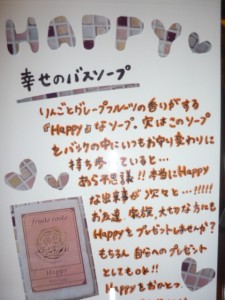 HAPPY
幸せのバスソープ
りんごとグレープフルーツの香りがする
『Happy』なソープ。実はこのソープ
をバックの中にいつもお守り変わりに
持ち歩いていると…
あら不思議!!本当にHappy
な出来事が次々と…!!!!!
お友達、家族、大切な方にも
Happyをプレゼントしませんか?
もちろん自分へのプレゼント
としてもok!!
Happyをおかそっ
fruits roots
Happy